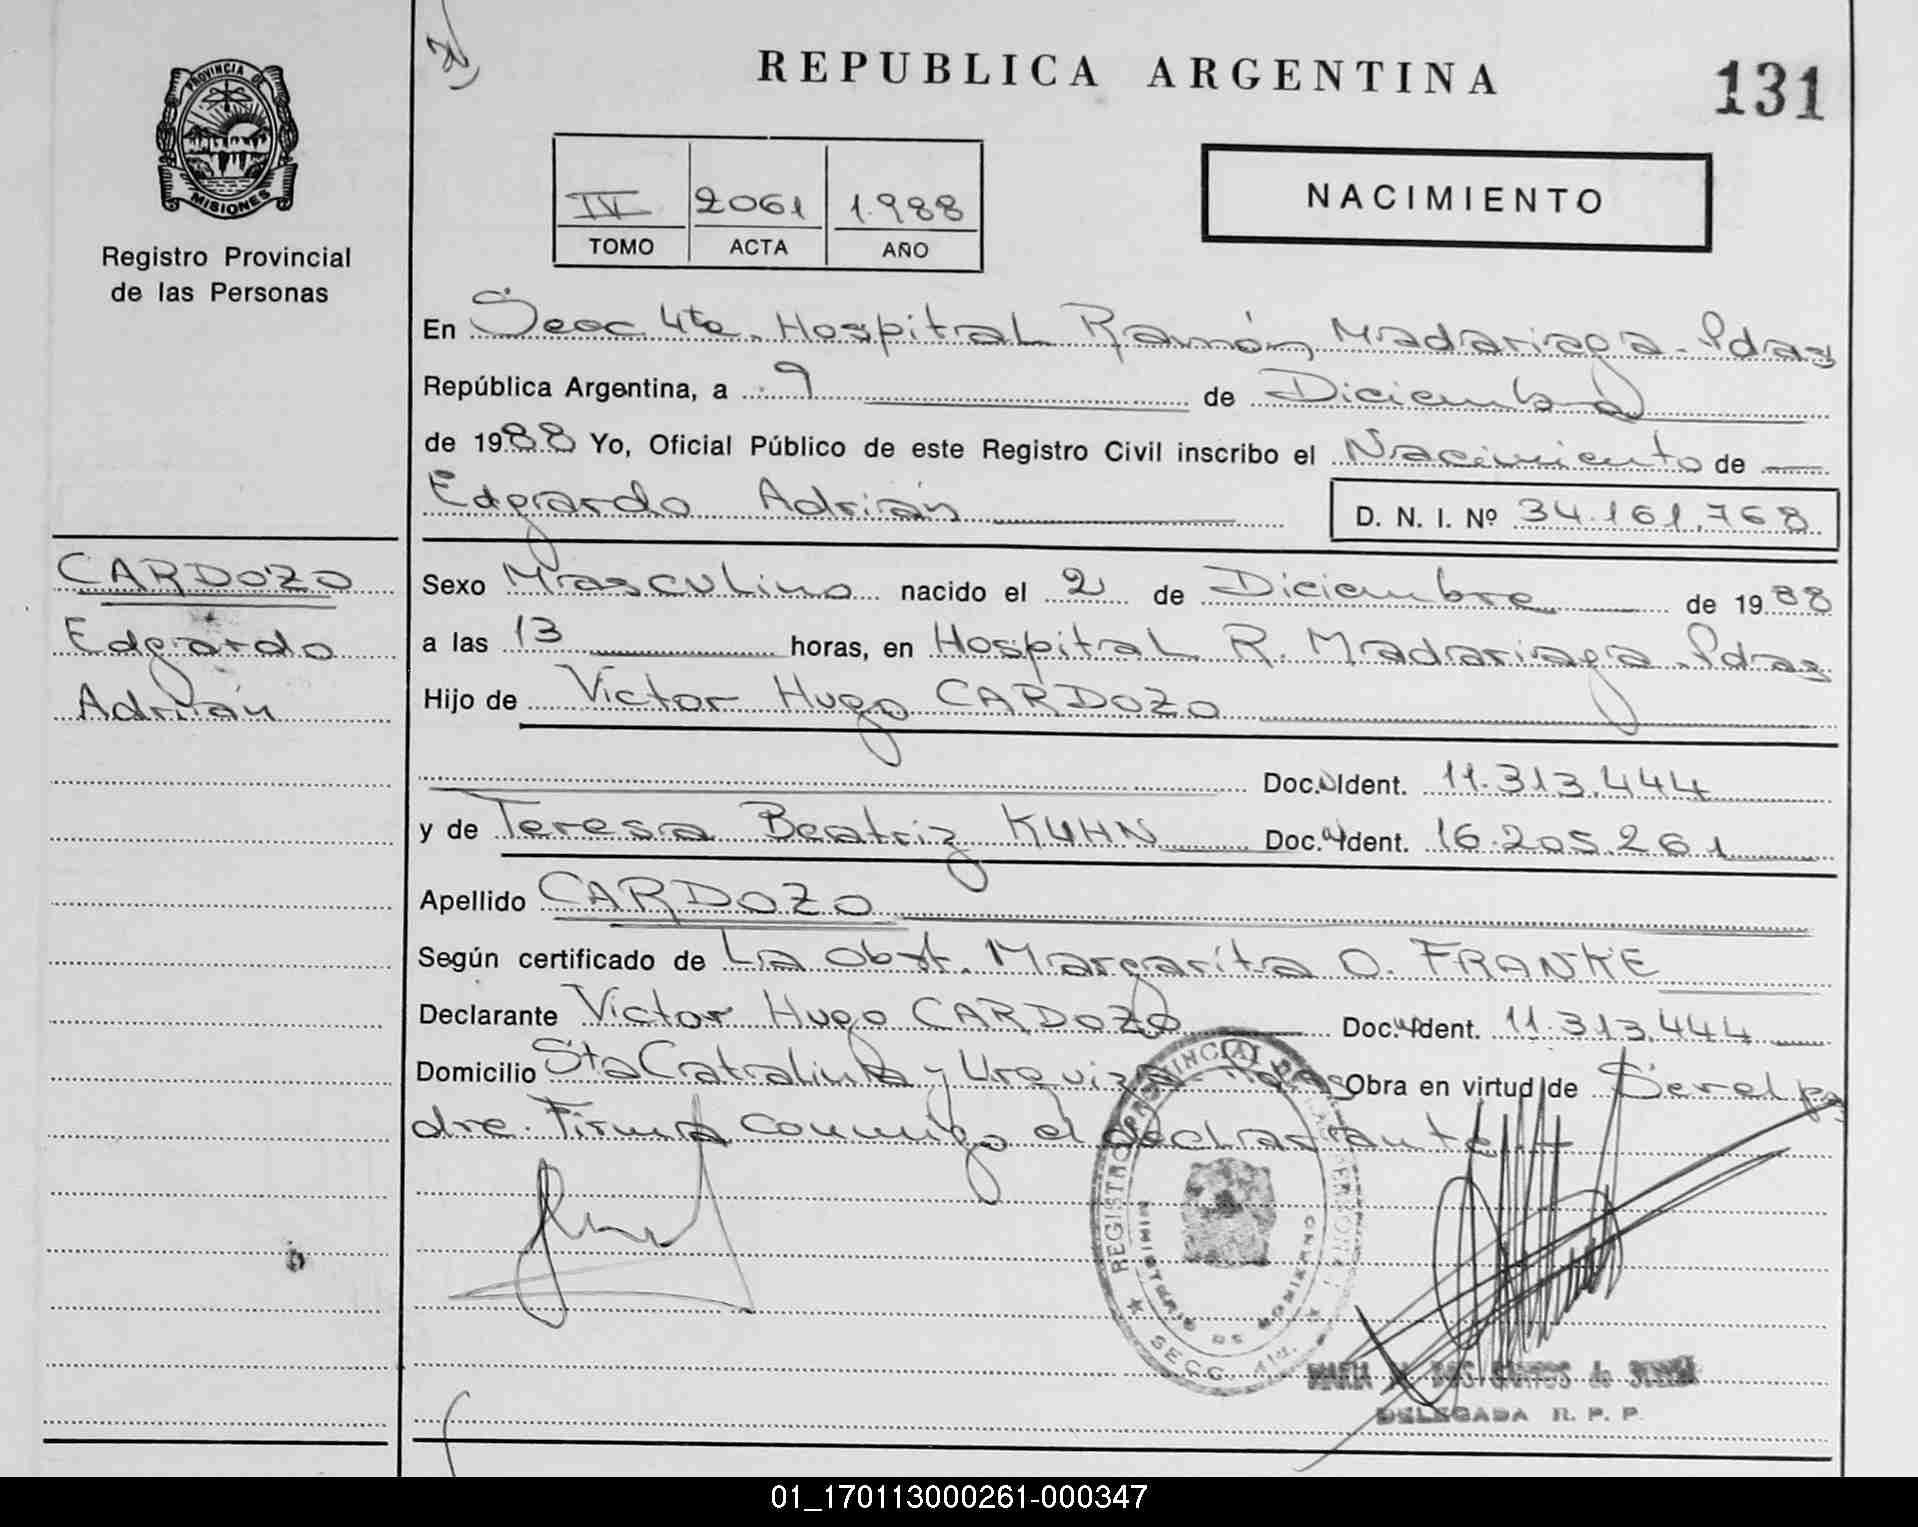 PROVINCIA DE
MISIONES
Registro Provincial
de las Personas
REPUBLICA ARGENTINA
131
IV 2061 1.988
TOMO ACTA AÑO
NACIMIENTO
En Secc. 4ta. Hospital Ramón Madariaga - Pdas
República Argentina, a 9 de Diciembre
de 1988 Yo, Oficial Público de este Registro Civil inscribo el Nacimiento de
Edgardo Adrián D. N. I. Nº 34.161.768
CARDOZO
Edgardo
Adrián
Sexo Masculino nacido el 2 de Diciembre de 1988
a las 13 horas, en Hospital R. Madariaga - Pdas
Hijo de Victor Hugo CARDOZO
Doc. Ident. 11.313.444
y de Teresa Beatriz KUHN Doc. Ident. 16.205.261
Apellido CARDOZO
Según certificado de La Obst. Margarita O. FRANKE
Declarante Victor Hugo CARDOZO Doc. Ident. 11.313.444
Domicilio Sta Catalina y Urquiza - Pdas Obra en virtud de Ser el pa
dre. Firma conmigo el declarante
REGISTRO PROVINCIAL DE LAS PERSONAS
MINISTERIO DE GOBIERNO
SECC. 4ta.
MARIA DOS SANTOS de
DELEGADA R. P. P.
01_170113000261-000347